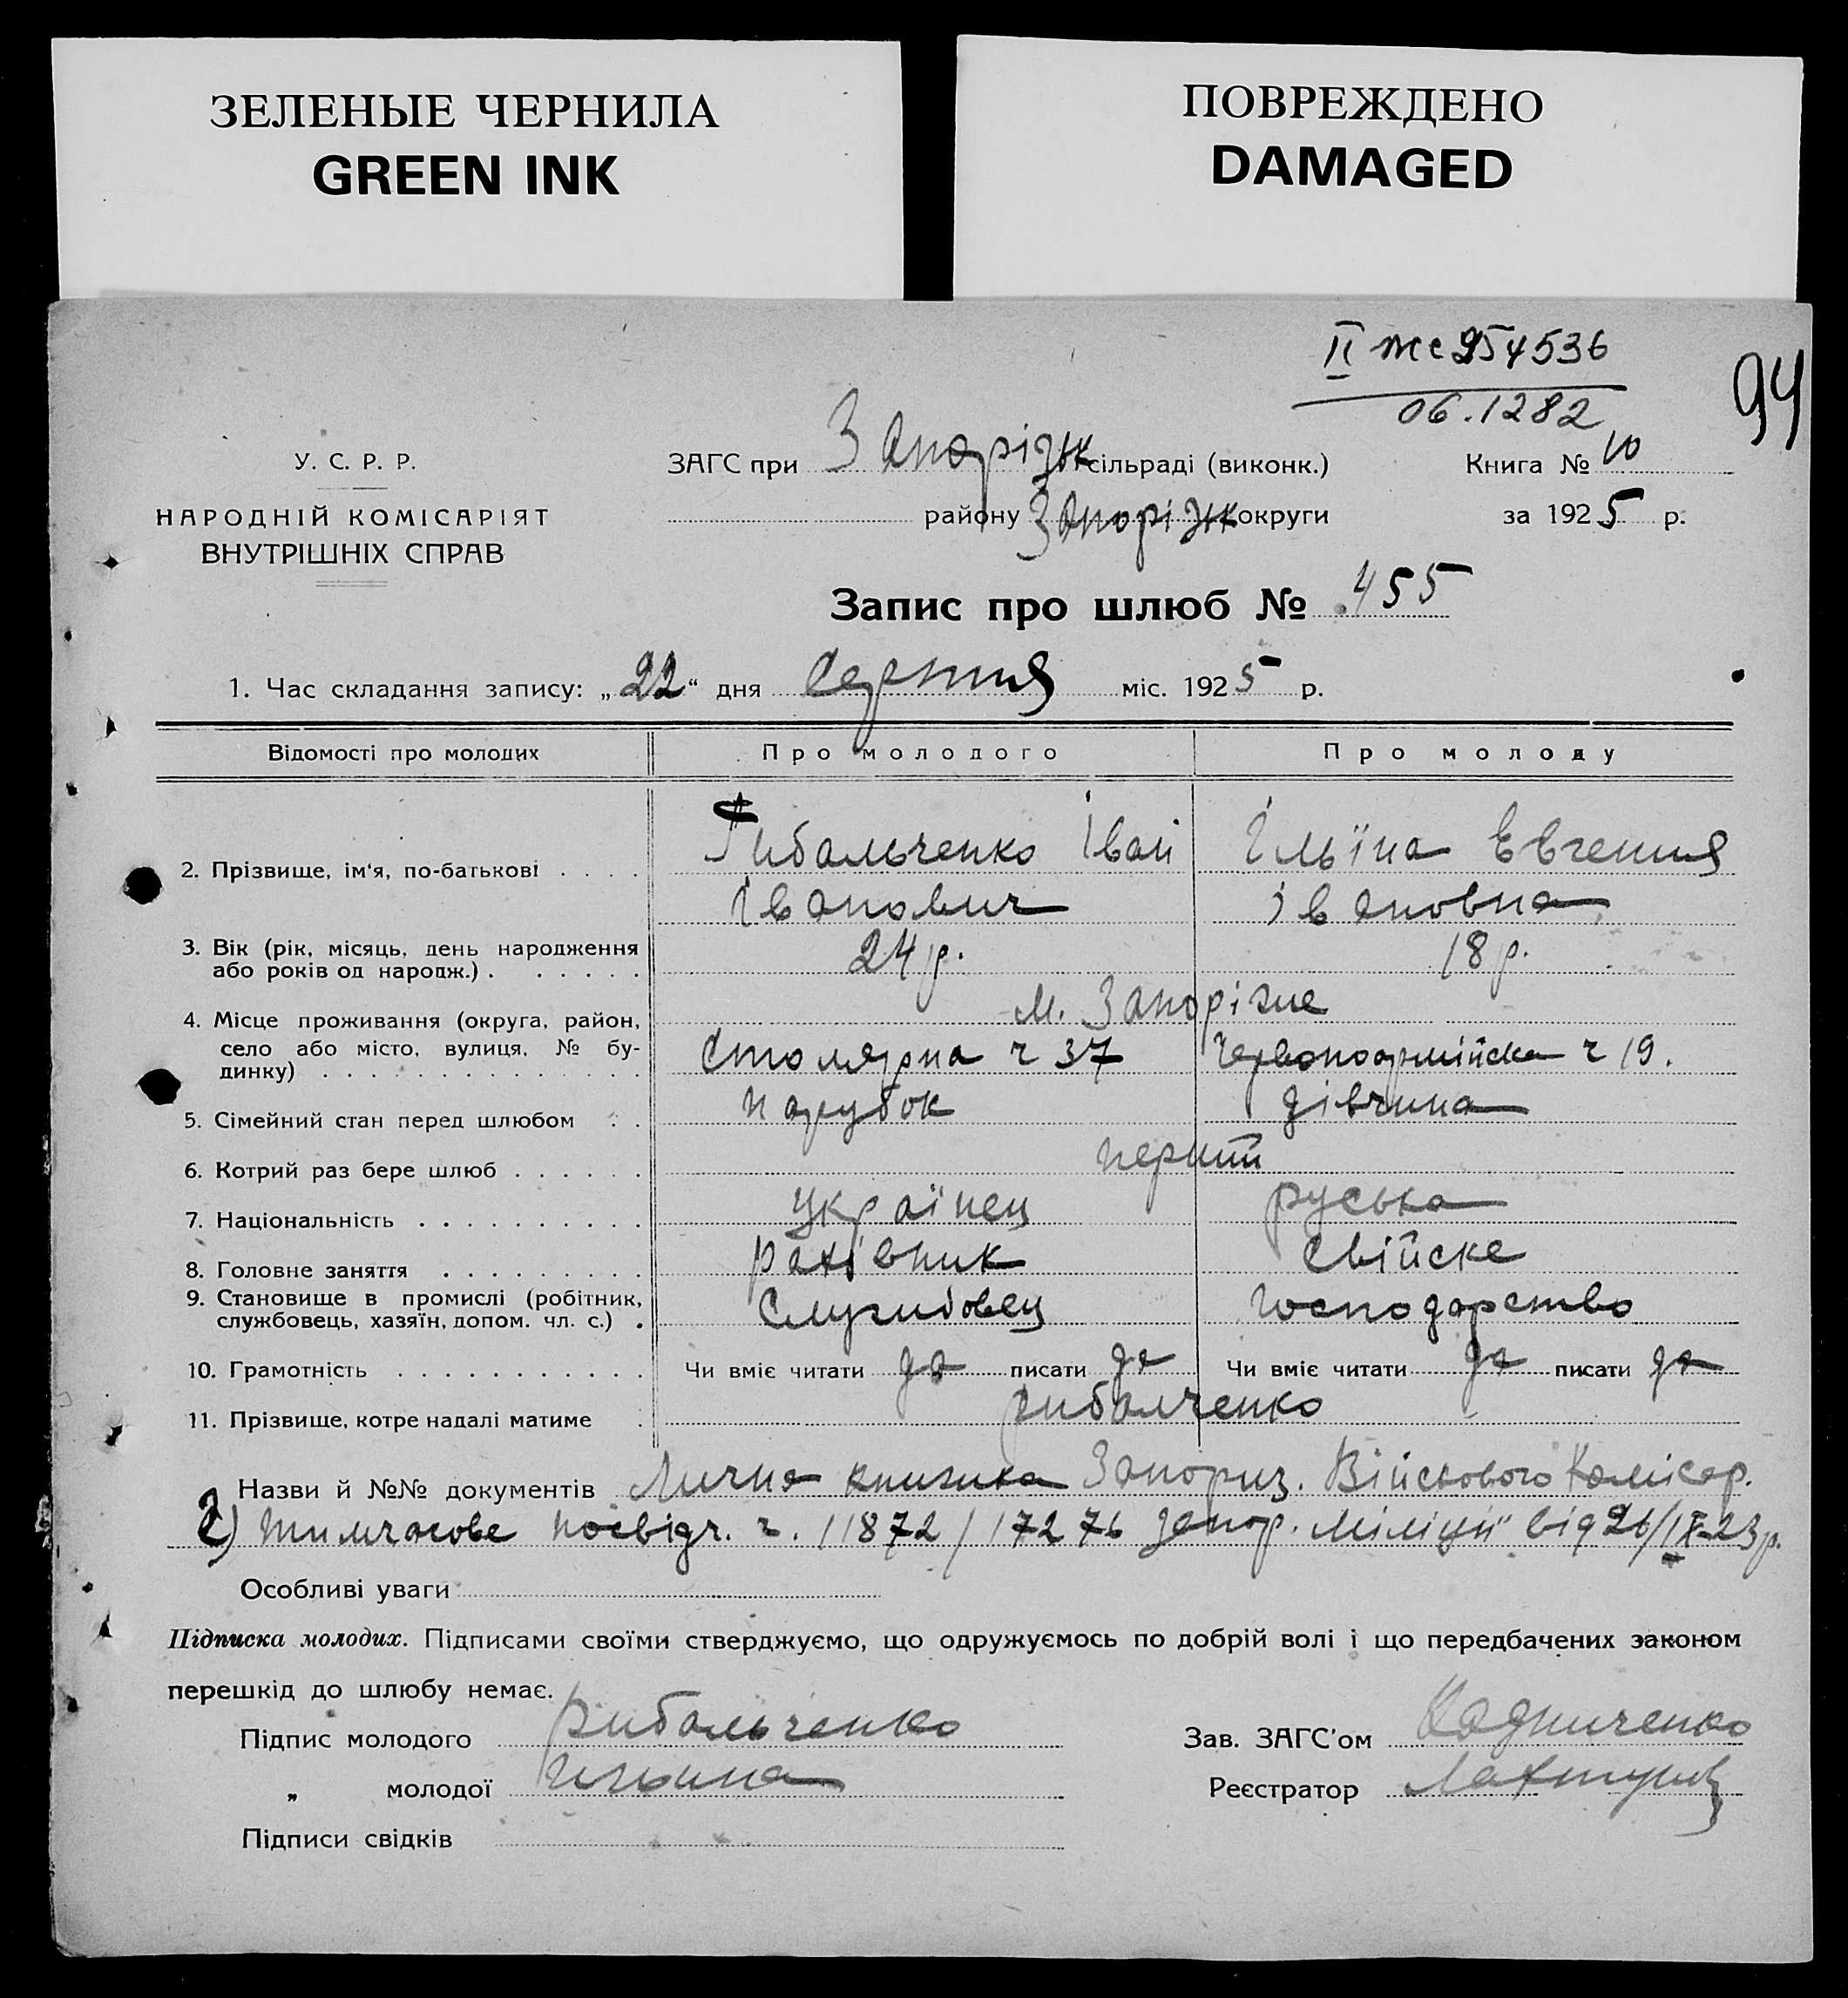 ЗЕЛЕНЫЕ ЧЕРНИЛА
GREEN INK
ПОВРЕЖДЕНО
DAMAGED
II жс 954536
06.1282
94
У. С. Р. Р.
НАРОДНІЙ КОМІСАРІЯТ
ВНУТРІШНІХ СПРАВ
ЗАГС при Запорізьк сільраді (виконк.)
району Запорізьк округи
Книга № 10
за 1925 р.
Запис про шлюб № 455
1. Час складання запису: „22“ дня Серпня міс. 1925 р.
Відомості про молодих Про молодого Про молоду
2. Прізвище, ім'я, по-батькові . . . . Рибальченко Іван Ільїна Евгения
Іванович Івановна
3. Вік (рік, місяць, день народження 24 р. 18 р.
або років од народж.) . . . . . .
4. Місце проживання (округа, район, м. Запоріжже
село або місто, вулиця, № бу- Столярна ч 37 Червоноармійска ч 19.
динку) . . . . . . . . . . . . .
5. Сімейний стан перед шлюбом . . парубок дівчина
6. Котрий раз бере шлюб . . . . . . перший
7. Національність . . . . . . . . . . українец руська
8. Головне заняття . . . . . . . . . рахівник Свійске
9. Становище в промислі (робітник, Служибовец господарство
службовець, хазяїн, допом. чл. с.) .
10. Грамотність . . . . . . . . . . . Чи вміє читати да писати да Чи вміє читати да писати да
11. Прізвище, котре надалі матиме . рибалченко
Назви й №№ документів Лична книжка Запориз. Військового Комісар.
2) тимчасове посвідч. ч. 11872/17276 запор. Міліції від 26/IX-23 р.
Особливі уваги
Підписка молодих. Підписами своїми стверджуємо, що одружуємось по добрій волі і що передбачених законом
перешкід до шлюбу немає.
Підпис молодого Рибальченко
„ молодої Ильина
Підписи свідків
Зав. ЗАГС'ом
Реєстратор